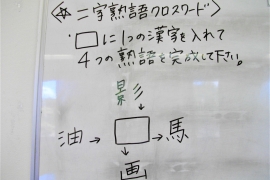 二字熟語クロスワード
□に1つの漢字を入れて
4つの熟語を完成して下さい。
影
油→□→馬
画